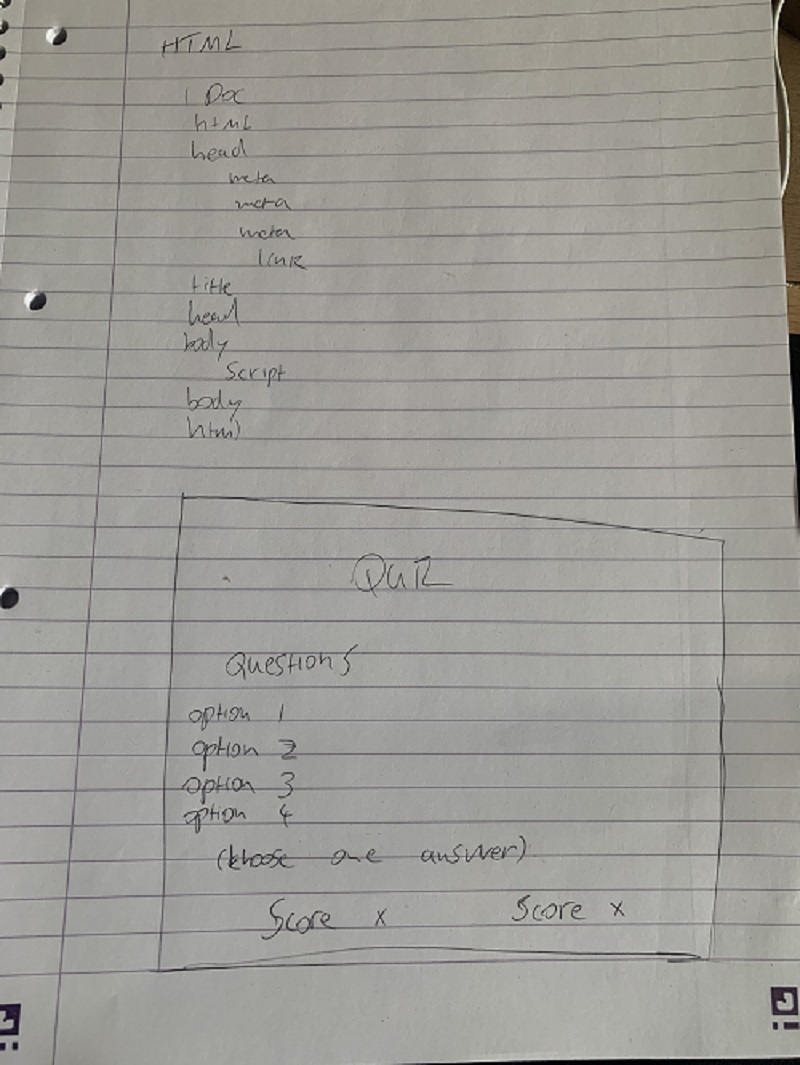 HTML
! Doc
html
head
meta
meta
meta
link
title
head
body
Script
body
html
QUIZ
Questions
option 1
option 2
option 3
option 4
(choose one answer)
Score x Score x